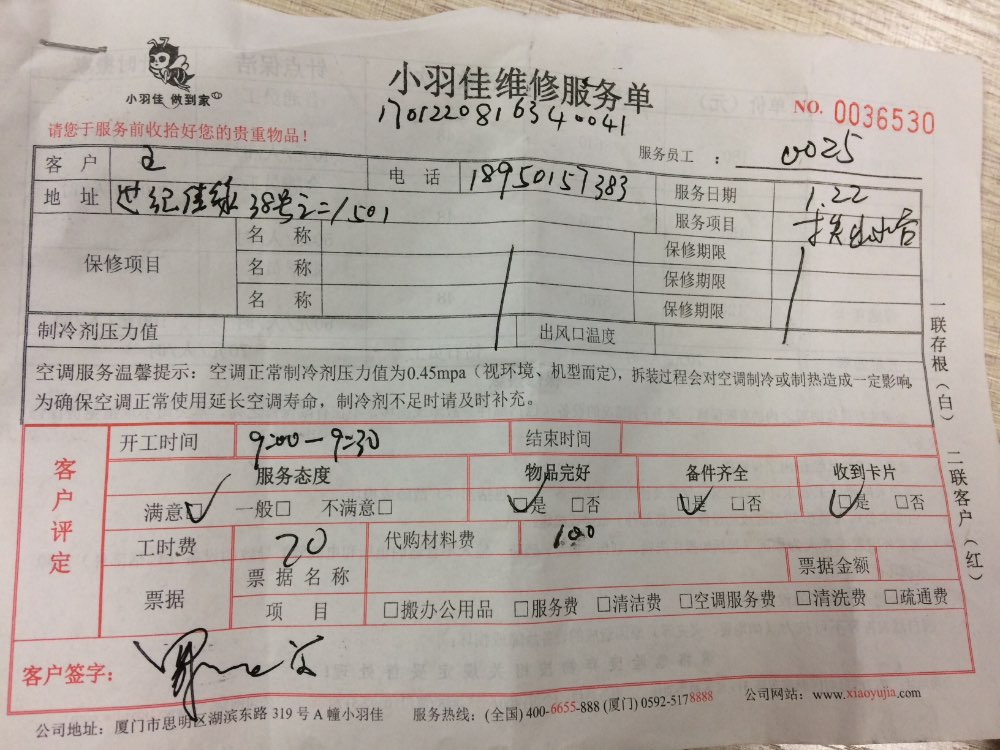 小羽佳 做到家
小羽佳维修服务单
170122081634 0041
NO. 0036530
请您于服务前收拾好您的贵重物品！
服务员工 ： 0025
客 户 王 电 话 18950157383 服务日期 1.22
地 址 38号之二1501 服务项目
保修项目 名 称 保修期限
名 称 保修期限
名 称 保修期限
制冷剂压力值 出风口温度
空调服务温馨提示：空调正常制冷剂压力值为0.45mpa（视环境、机型而定），拆装过程会对空调制冷或制热造成一定影响，
为确保空调正常使用延长空调寿命，制冷剂不足时请及时补充。
客户评定
开工时间 9:00-9:30 结束时间
服务态度 物品完好 备件齐全 收到卡片
满意☑ 一般□ 不满意□ ☑是 □否 ☑是 □否 ☑是 □否
工时费 20 代购材料费 100
票据 票 据 名 称 票据金额
项 目 □搬办公用品 □服务费 □清洁费 □空调服务费 □清洗费 □疏通费
客户签字：
公司地址：厦门市思明区湖滨东路 319 号 A 幢小羽佳 服务热线：(全国) 400-6655-888 (厦门) 0592-5178888 公司网站：www.xiaoyujia.com
一联存根（白） 二联客户（红）